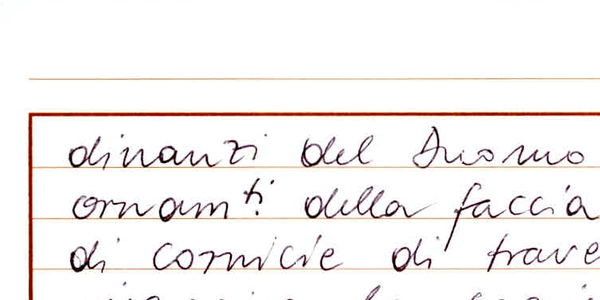 dinanzi del Duomo
ornam.ti della faccia
di cornicie di trave